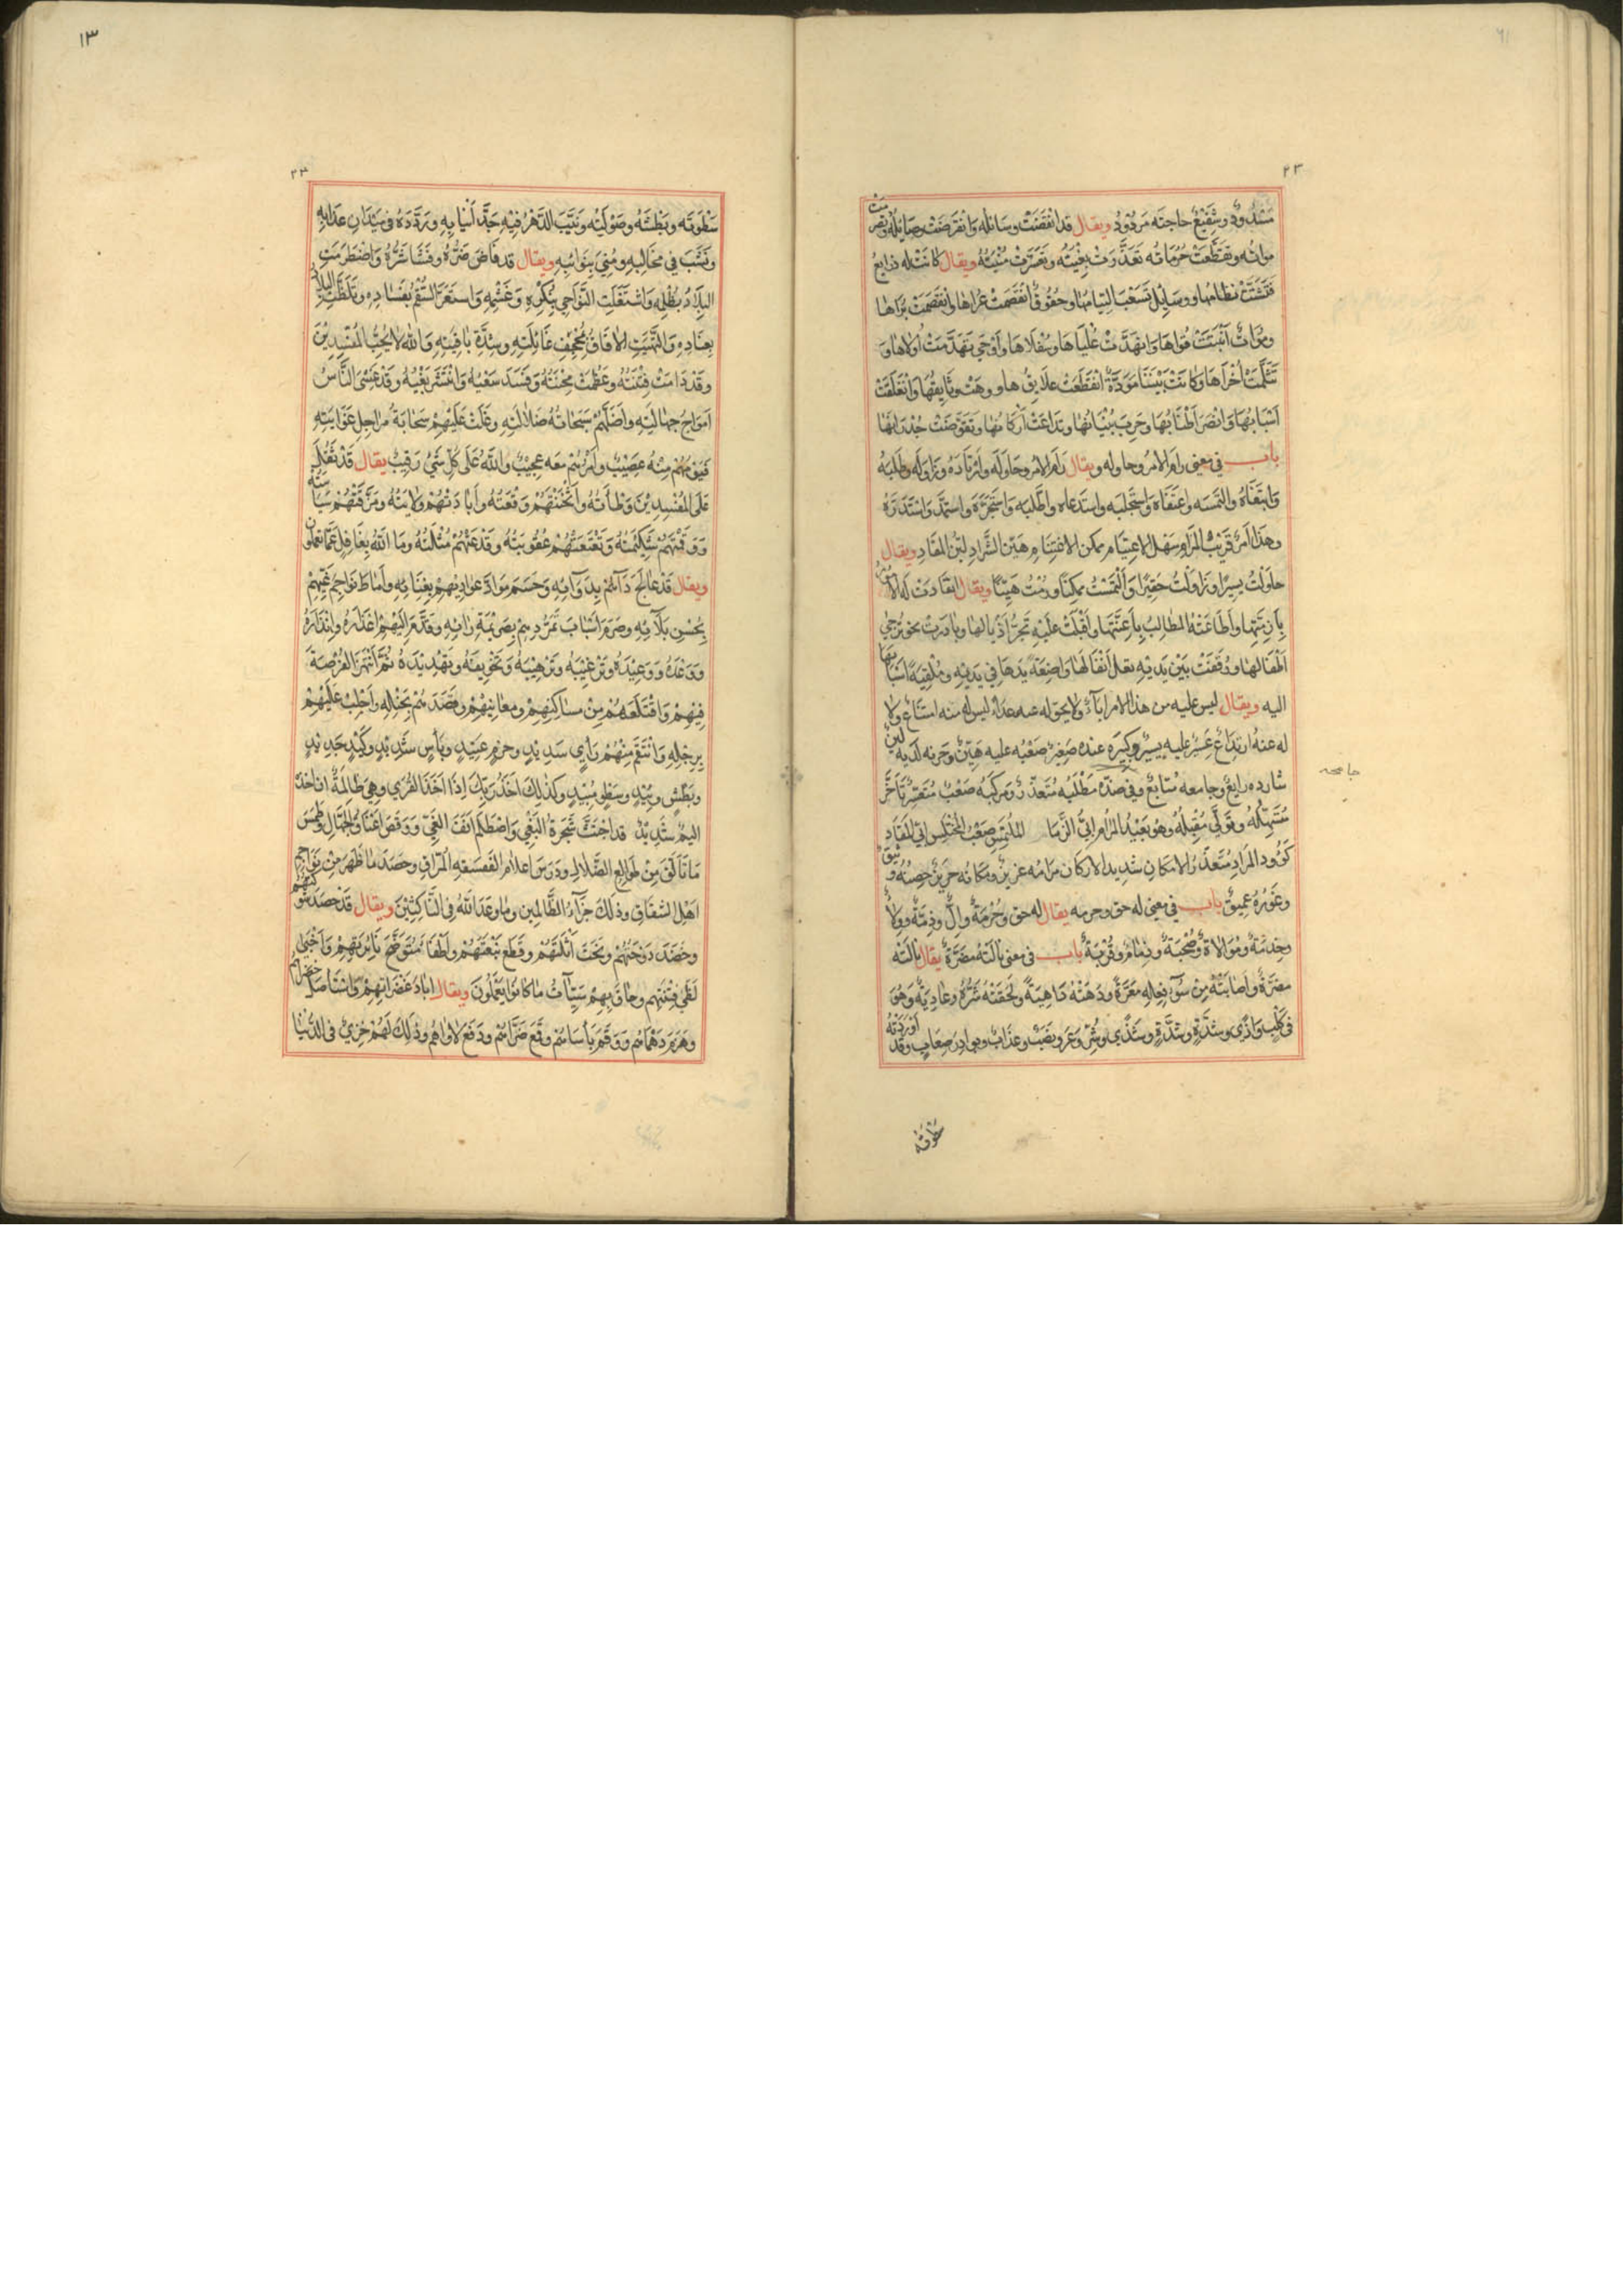 ٢٣
مَسْدُودٌ وشَفِيْعُ حاجتَه مَردُودٌ ويقال قد انْقَضَتْ وسائلُه وَانْقَرضَتْ وصايلُه وتصرّمت
مواتُّه وتقطَّعَتْ حُرُماتُه تَعَذَّرَتْ بِغْيَتُه وتَعَسَّرَتْ مُنْيَتُهُ ويقال كانَتْ له ذرايعُ
فَتَشَتَّتَ نِظامُها ووسايِلُ تَشَعَّبَ التِيامُها وحُقُوقٌ انْفَصَمَتْ عُراها وانْفَصَمَتْ بُراها
وموَاتُّ انْبَتَّتْ قُواها وَانهَدَّتْ عُلْيَاها وسُفْلَاها وَأَوَاخِي تَهَدَّمَتْ أولاها وَ
تَثَلَّمَتْ أُخْرَاها وكانَتْ بَيْنَنَا مَوَدَّةٌ انْقَطَعَتْ علَايِقُها ووهَتْ وثَايِقُها وَانْغَلَقَتْ
اَسْبَابُها وَانْصَرَ اَطْنَابُهَا وخَرِبَ بُنْيَانُها وتَداعَتْ أَرْكانُها وتقَوَّضَتْ جُدْرَانُها
باب في معنى رام الأمر وحاوله ويقال رَامَ الامر وحَاوَلَه وَارْتَادَهُ وزاوَله وطَلبَهُ
وَابتَغَاهُ والتمَسَه وَاعْتَفَاهُ وَاسْتَجْلَبَه واسْتَدعاه واطَّلبَه وَاسْتَجَرَّهُ وَاسْتمدَّ وَاسْتَدَرَّهُ
وهٰذا اَمرٌ قَرِيْبُ المَرامِ سَهْلُ الاعتِيَامِ ممكن الاغتِنَامِ هَيِّنُ الشّرَادِ لَيِّنُ المَقَادِ ويقال
حاوَلْتُ يسِيرًا وزَاوَلْتُ حَقِيرًا وَالْتَمَسْتُ ممكِنًا ورُمْتُ هَيِّنًا ويقال انقَادَتْ لَه الأُمورُ
بِأَزِمَّتِها وأَطاعَتْهُ المطالِبُ بِأَعِنَّتِها وأَقْبَلَتْ عليهِ تَجُرُّ أَذْيالها وبادرت نحوَه تُزجِي
أَطْفالها ووَقَفَتْ بَيْن يَدَيْهِ بِثِقَلِ أَثْقَالِها وَاضِعَةً يدَها فِي يدَيْهِ ومُلْقِيَةً أَسْبَابَها
اليه ويقال ليس عليه من هذا الامر اباءٌ ولا يحول له عنه عداءٌ ليس له منه امتناعٌ ولا
له عنهُ ارتِدَاعٌ عَسِيرُه عليه يسيرٌ وكبيرُه عندَه صَغِيرٌ صَعْبُه عليه هَيِّنٌ وحَزنه لَديه لَيِّنٌ
شارده رايعٌ وجامعه مُتابعٌ وفي ضدّه مَطْلَبُه مُتَعَذّرٌ ومَركَبُه صَعْبٌ مُتعسِّرٌ تأخَّرَ
مُتَسَهِّلُهُ وتَولَّى مُقْبِلُهُ وهُو بَعيدُ المَرامِ اَبِيُّ الزِّمَامِ الملتَمَسِ صَعْبُ المُختَلَسِ اَبِيُّ المَقَادِ
كَؤُودُ المَرادِ مُتَعذّرُ الامكانِ شديد الاركان مَرَامُه عزيزٌ ومكانُه حَرِيزٌ حِصْنُه وَثيقٌ
وغَوْرُهُ عَمِيقٌ باب في معنى له حق وحرمه يقال له حقٌ وحُرْمَةٌ والٌّ وذِمَّةٌ وولاءٌ
وخِدمَةٌ ومُوَالاةٌ وصُحْبَةٌ وذِمامٌ وقُرْبَةٌ باب في معنى نالَتهُ مضَرّةٌ يقال نالَتْه
مضرّةٌ وأَصابَتْهُ مِنْ سُوءِ فِعالِه مَعَرَّةٌ ودَهَتْهُ دَاهِيَةٌ ولَحِقَتْهُ شَرُّهُ وعادِيَةٌ وهُوَ
في كَلَبٍ وَأَذًى وشِدَّةٍ وشَذًى وشَرٍّ وَعَرٍ ونَصَبٍ وعذَابٍ وبوادِرَ صِعَابٍ وقد اَوْرَدَتْهُ
جامحه
سطوته
١٣
٢٣
سَطْوتَه وبَطْشَتَه وصَوْلَتِهْ وَنَيَّبَ الدَّهْرُ فِيْهِ حَدَّ اَنْيابِهِ ورَدَّدَهُ في مَيْدَانِ عَذَابِهِ
ونَشَبَ فِي مخَالِبِهِ ومُنِيَ بِنَوَائِبِهِ ويقال قد فَاضَ ضَرُّهُ وفَشَا شَرُّهُ وَاضْطَرَمَتِ
البِلَادُ بِظُلْمِهِ وَاشْتَعَلَتِ النَّوَاحِي بِنُكْرِهِ وَغَشْمِهِ وَاسْتَعَرَ السَّقْمُ بِفَسَادِهِ وتَلَظَّتِ البِلَادُ
بِعِنَادِهِ وَالْتَهَبَتِ الآفَاقُ بِمُجْحِفِ غَائِلَتِهِ وشِدَّةِ بَافِيَتِهِ وَاللهُ لا يُحِبُّ المُفْسِدِيْنَ
وقَدْ دَامَتْ فِتْنَتُهُ وعَظُمَتْ مِحْنَتُهُ وفَسَدَ سَعْيُهُ وَانْتَشَرَ بَغْيُهُ وقَدْ غَشِىَ النَّاسَ
اَمْوَاجُ جهالَتِهِ وأَضَلَّهُمْ سَحَابَةُ ضَلالَتِهِ وغَلَتْ عَلَيْهِمْ سَحَابَةُ مراجِلِ غَوَايَتِهِ
فَيَوْمُهُمْ مِنْهُ عَصِيْبٌ وأَمْرُهُمْ مَعَه عَجِيْبٌ واللهُ عَلَى كُلِّ شَيْءٍ رَقِيبٌ يقال قَدْ ثَقُلَتْ
عَلَى المُفْسِدِيْنَ وَطْأَتُهُ وأَثْخَنَتْهُمْ وَقْعَتُه وأَبَادَتْهُمْ ولَايَتُهُ ومَزَّقَتْهُمْ سِيَاسَتُهُ
وَوَقَمَتْهُمْ شَكِيْمَتُهُ وَتَعْتَعَتْهُمْ عُقُوبَتُهُ وقَدَعَتْهُمْ مُثْلَتُهُ ومَا اللهُ بِغَافِلٍ عَمَّا تعملون
ويقال قَدْ عَالَجَ دَآءَهُمْ بِدَوَآئِهِ وَحَسَمَ مَوَادَّ عَوَادِيْهِمْ بِغِنَائِهِ وأَماطَ نَوَاجِمَ غَيِّهِمْ
بِحُسْنِ بَلَآئِهِ وصَرَمَ اَسْبَابَ تَمَرُّدِهِمْ بِصَرِيْمَةِ رَايِهِ وقَدَّمَ اِلَيْهِمْ اِعْذَارَهُ وإنْذَارَهُ
وَوَعْدَهُ ووَعِيْدَهُ وتَرْغِيْبَهُ وتَرْهِيْبَهُ وَتَخْوِيفَهُ وتَهْدِيْدَهُ ثُمَّ انْتَهَزَ الفُرْصَةَ
فِيْهِمْ وَاقْتَلَعَهُمْ مِنْ مسَاكِنِهِمْ ومعَانِيْهِمْ وقَصَدَهُمْ بِخَيْلِهِ وأَجْلَبَ عَلَيْهِمْ
بِرَجْلِهِ وَانْتَقَمَ مِنْهُمْ بِرَأْيٍ سَدِيْدٍ وحزمٍ عَتِيْدٍ وبَأْسٍ شَدِيْدٍ وكَيْدٍ جَدِيْدٍ
وبَطْشٍ مُبِيْدٍ وسَطْوٍ مُبِيْدٍ وكَذٰلِكَ أَخْذُ رَبِّكَ اِذَا أَخَذَ القُرٰى وهِيَ ظَالِمَةٌ ان اَخْذَهُ
اليمٌ شَدِيْدٌ قد اجْتَثَّ شَجَرَةَ البَغْيِ وَاصْطَلَمَ انْفَ الغَيِّ وَوَقَصَ اَعْنَاقَ الجُهَّالِ وطَمَسَ
مَا تَأَلَّقَ مِنْ طَوَالِعِ الضَّلالِ ودَرَسَ أعْلامَ الفَسقَةِ المُرّاقِ وحَصَدَ مَا ظَهَرَ مِنْ نَوَاجِمِ
اَهْلِ الشقَاقِ وذٰلِكَ جَزَآءُ الظَّالِمِيْن وما وعَدَ اللهُ في النَّاكِثِيْنَ ويقال قَدْ حَصَدَ شَوْكَتَهُمْ
وخَضَدَ دَوْحَتَهُمْ ونَحَتَ اَثْلَتَهُمْ وقَطَعَ نَبْعَتَهُمْ واَطْفَأَ مُتَوَضِّحَ نَائِرَتِهِمْ وأَخْبَى
لَظَى فِتْنَتِهِم وحَاقَ بِهِمْ سَيِّآتُ مَا كَانُوا يَعْمَلُونَ ويقال ابادَ غَضْرَاءَهُمْ وَاسْتَأْصَلَ خَضْرَاءَهُمْ
وهَزَمَ دَهْمَاءَهُمْ وَوَقَمَ بَأْسَاءَهُمْ وقَمَعَ ضَرَّاءَهُمْ ودَفَعَ لَاوَاءَهُمْ وذٰلِكَ لَهُمْ خِزْيٌ فِي الدُّنْيَا